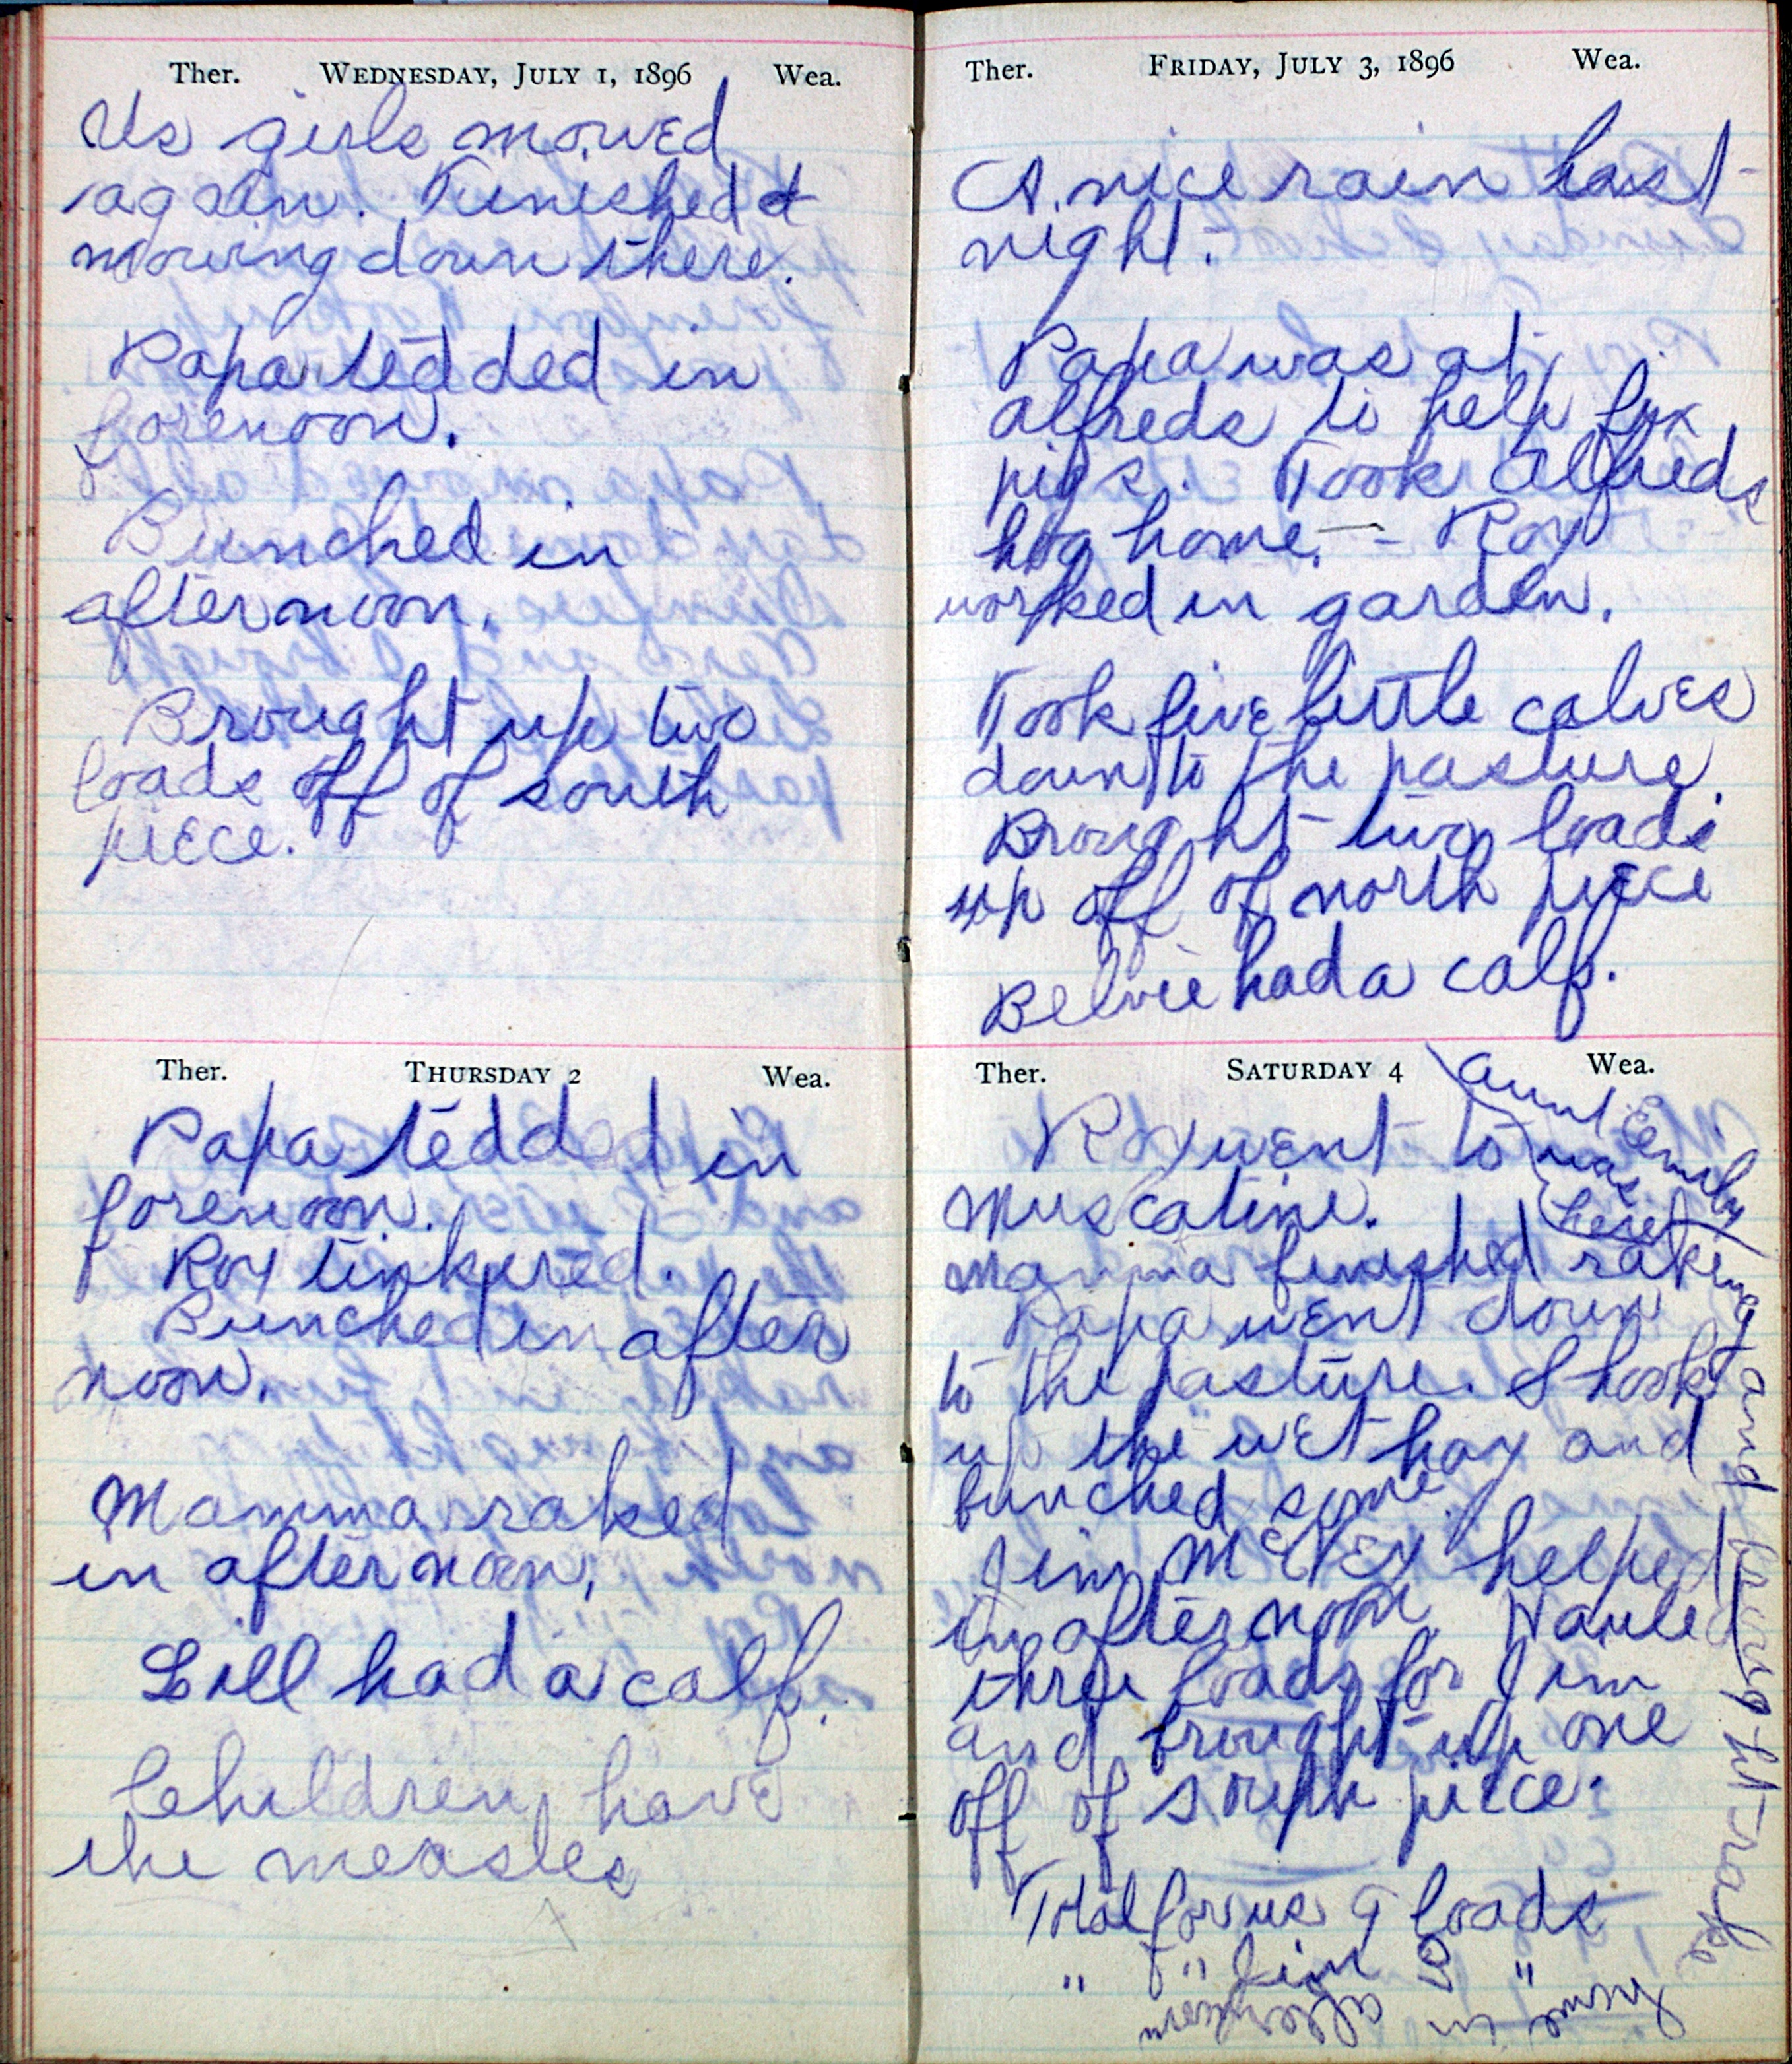 Ther. WEDNESDAY, JULY 1, 1896 Wea.
Us girls mowed
again. Finished
mowing down there.
Papa tedded in
forenoon.
Bunched in
afternoon.
Brought up two
loads off of south
piece.
Ther. THURSDAY 2 Wea.
Papa tedded in
forenoon.
Roy tinkered.
Bunched in after
noon.
Mamma raked
in afternoon.
Lill had a calf.
Children have
the measles
Ther. FRIDAY, JULY 3, 1896 Wea.
A nice rain last
night.
Papa was at
Alfreds to help fix
pigs. Took Alfreds
hog home. - Roy
worked in garden.
Took five little calves
down to the pasture.
Brought two loads
up off of north piece
Belvie had a calf.
Ther. SATURDAY 4 Wea.
Aunt Emily
was
here
Roy went to
Muscatine.
Mamma finished raking
and brought rake
home in afternoon
Papa went down
to the pasture. Shook
up the wet hay and
bunched some.
Jim McVey helped
in afternoon. Hauled
three loads for Jim
and brought up one
off of south piece.
Total for us 9 loads
" " Jim "